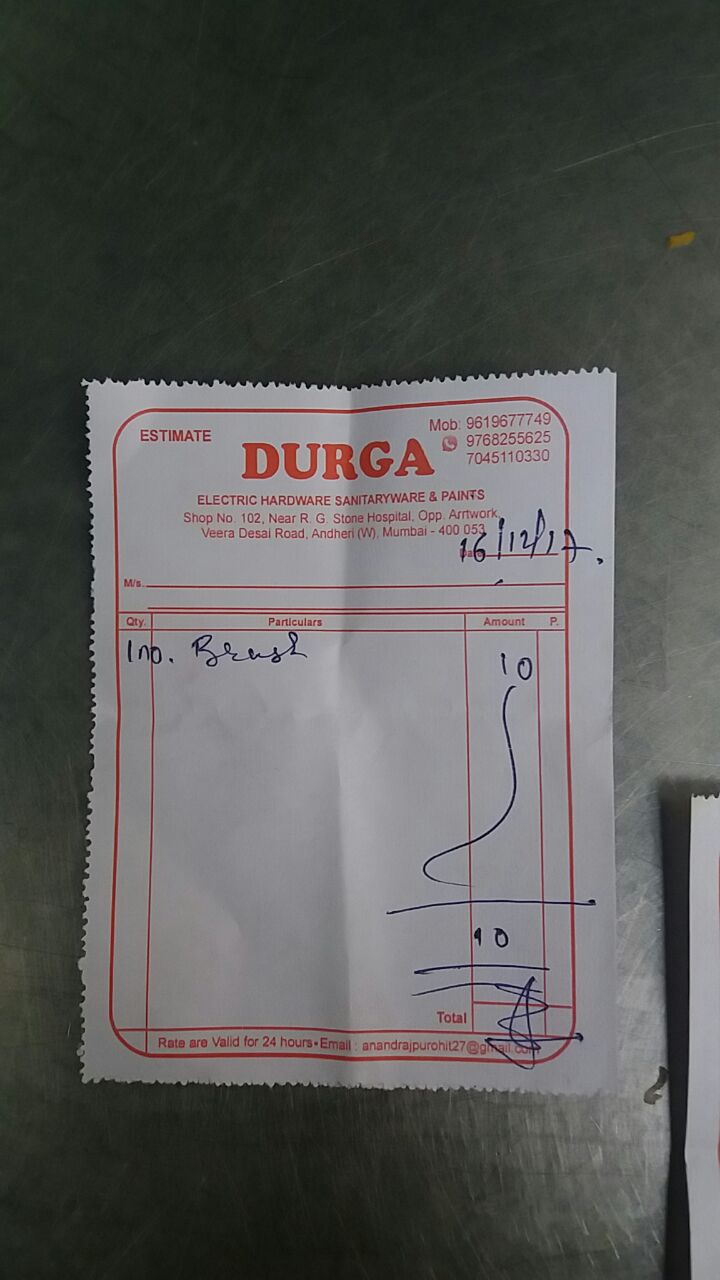 ESTIMATE
Mob: 9619677749
9768255625
7045110330
DURGA
ELECTRIC HARDWARE SANITARYWARE & PAINTS
Shop No. 102, Near R. G. Stone Hospital, Opp. Arrtwork,
Veera Desai Road, Andheri (W), Mumbai - 400 053
Date 16/12/17.
M/s.
Qty. Particulars Amount P.
1 no. Brush 10
10
Total
Rate are Valid for 24 hours • Email : anandrajpurohit27@gmail.com